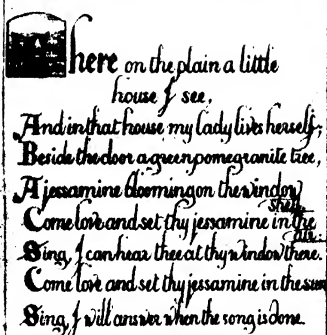 There on the plain a little
house I see,
And in that house my lady lives herself;
Beside the door a green pomegranite tree,
A jessamine blooming on the window
shelf.
Come love and set thy jessamine in the
air.
Sing, I can hear thee at thy window there.
Come love and set thy jessamine in the sun
Sing, I will answer when the song is done.